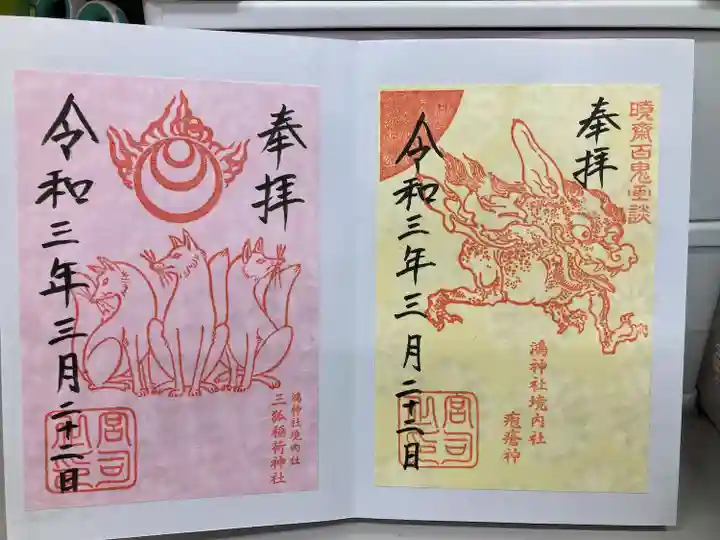 奉拝
令和三年三月二十二日
鴻神社境内社
三狐稲荷神社
宮司之印
暁斎百鬼画談
奉拝
令和三年三月二十二日
鴻神社境内社
疱瘡神
宮司之印